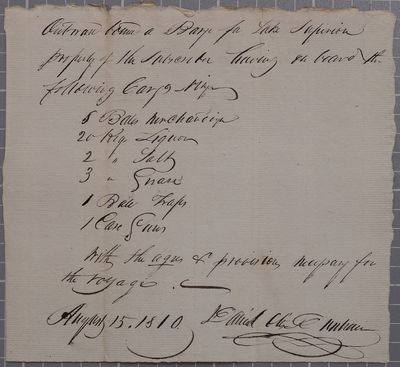 Outward bound a Barge for Lake Superior
property of the Subscriber having on board the
following Cargo
8 Bales Merchandize
20 Kegs Liquor
2 " Salt
3 " Grease
1 Bale Traps
1 Case Guns
with the and provisions necessary for
the voyage .
August 15. 1810. David